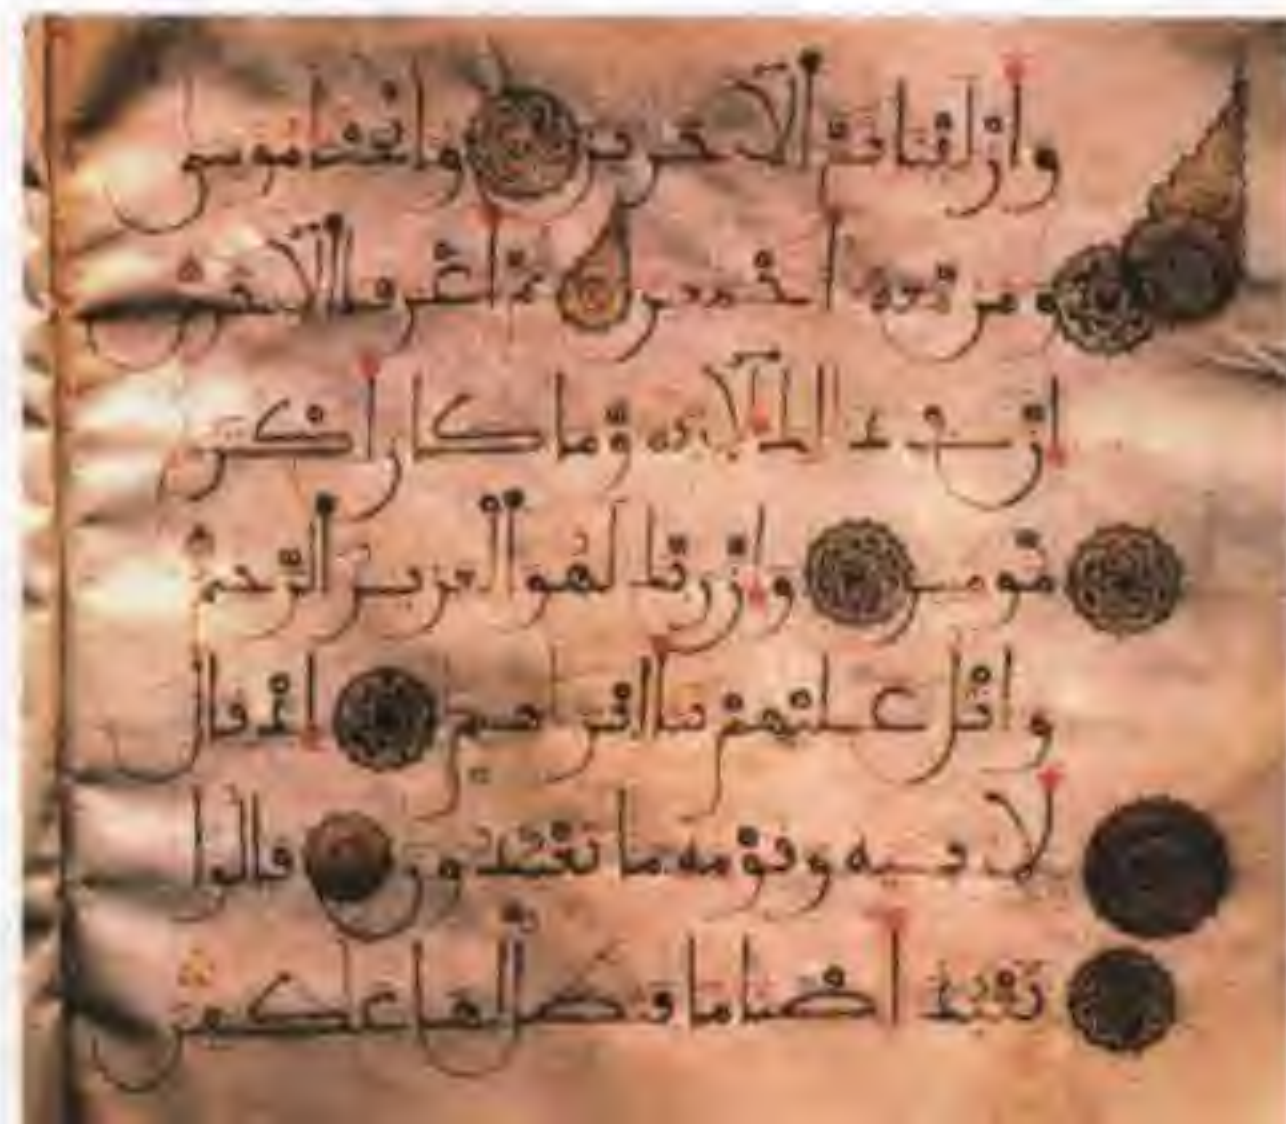 وأزلفنا ثم الآخرين وأنجينا موسى
ومن معه أجمعين ثم أغرقنا الآخرين
إن في ذلك لآية وما كان أكثرهم
مومنين وإن ربك لهو العزيز الرحيم
واتل عليهم نبأ إبراهيم إذ قال
لأبيه وقومه ما تعبدون قالوا
نعبد أصناما فنظل لها عاكفين